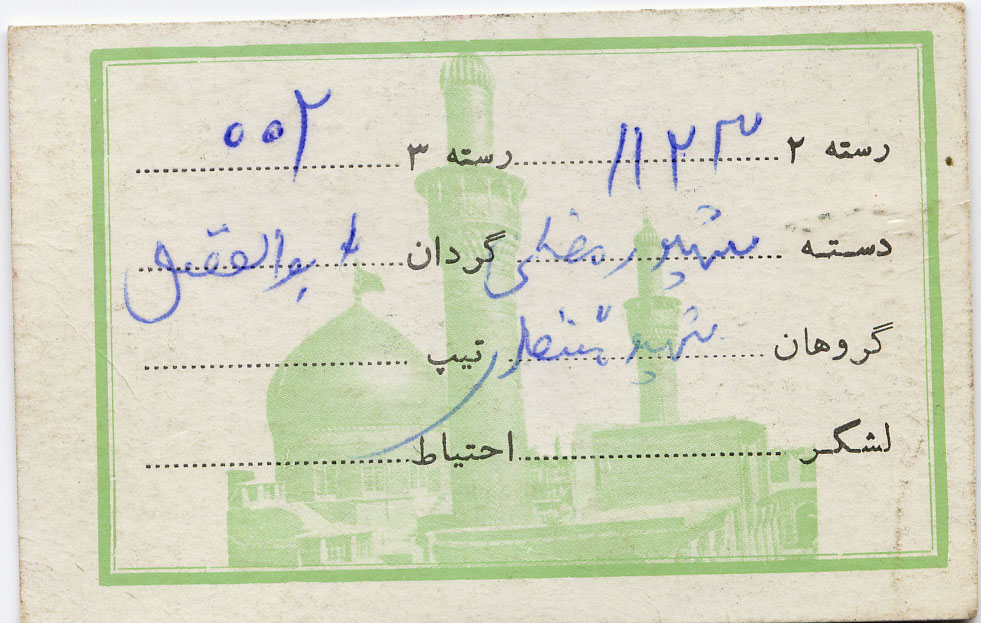 رسته ۲ ۱۱۲۳ رسته ۳ ۰۰۲
دسته شهید رمضانی گردان ابوالفضل
گروهان شهید منتظری تیپ
لشکر احتیاط